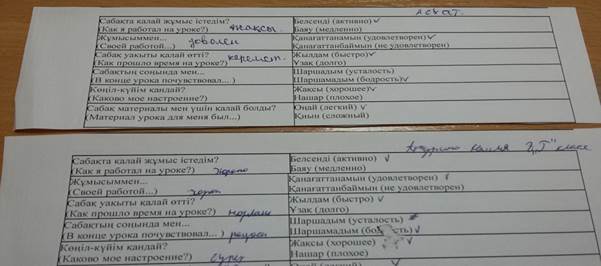 Асқат.
Сабақта қалай жұмыс істедім? Белсенді (активно) ✓
(Как я работал на уроке?) жақсы. Баяу (медленно)
Жұмысыммен... Қанағаттанамын (удовлетворен) ✓
(Своей работой...) доволен Қанағаттанбаймын (не удовлетворен)
Сабақ уақыты қалай өтті? Жылдам (быстро) ✓
(Как прошло время на уроке?) керемет. Ұзақ (долго)
Сабақтың соңында мен... Шаршадым (усталость)
(В конце урока почувствовал... ) Шаршамадым (бодрость) ✓
Көңіл-күйім қандай? Жақсы (хорошее) ✓
(Каково мое настроение?) Нашар (плохое)
Сабақ материалы мен үшін қалай болды? Оңай (легкий) ✓
(Материал урока для меня был...) Қиын (сложный)
класс
Сабақта қалай жұмыс істедім? Белсенді (активно) ✓
(Как я работал на уроке?) Баяу (медленно)
Жұмысыммен... Қанағаттанамын (удовлетворен)
(Своей работой...) Қанағаттанбаймын (не удовлетворен)
Сабақ уақыты қалай өтті? Жылдам (быстро) ✓
(Как прошло время на уроке?) Ұзақ (долго)
Сабақтың соңында мен... Шаршадым (усталость)
(В конце урока почувствовал... ) Шаршамадым ✓
Көңіл-күйім қандай? Жақсы (хорошее) ✓
(Каково мое настроение?) супер Нашар (плохое)